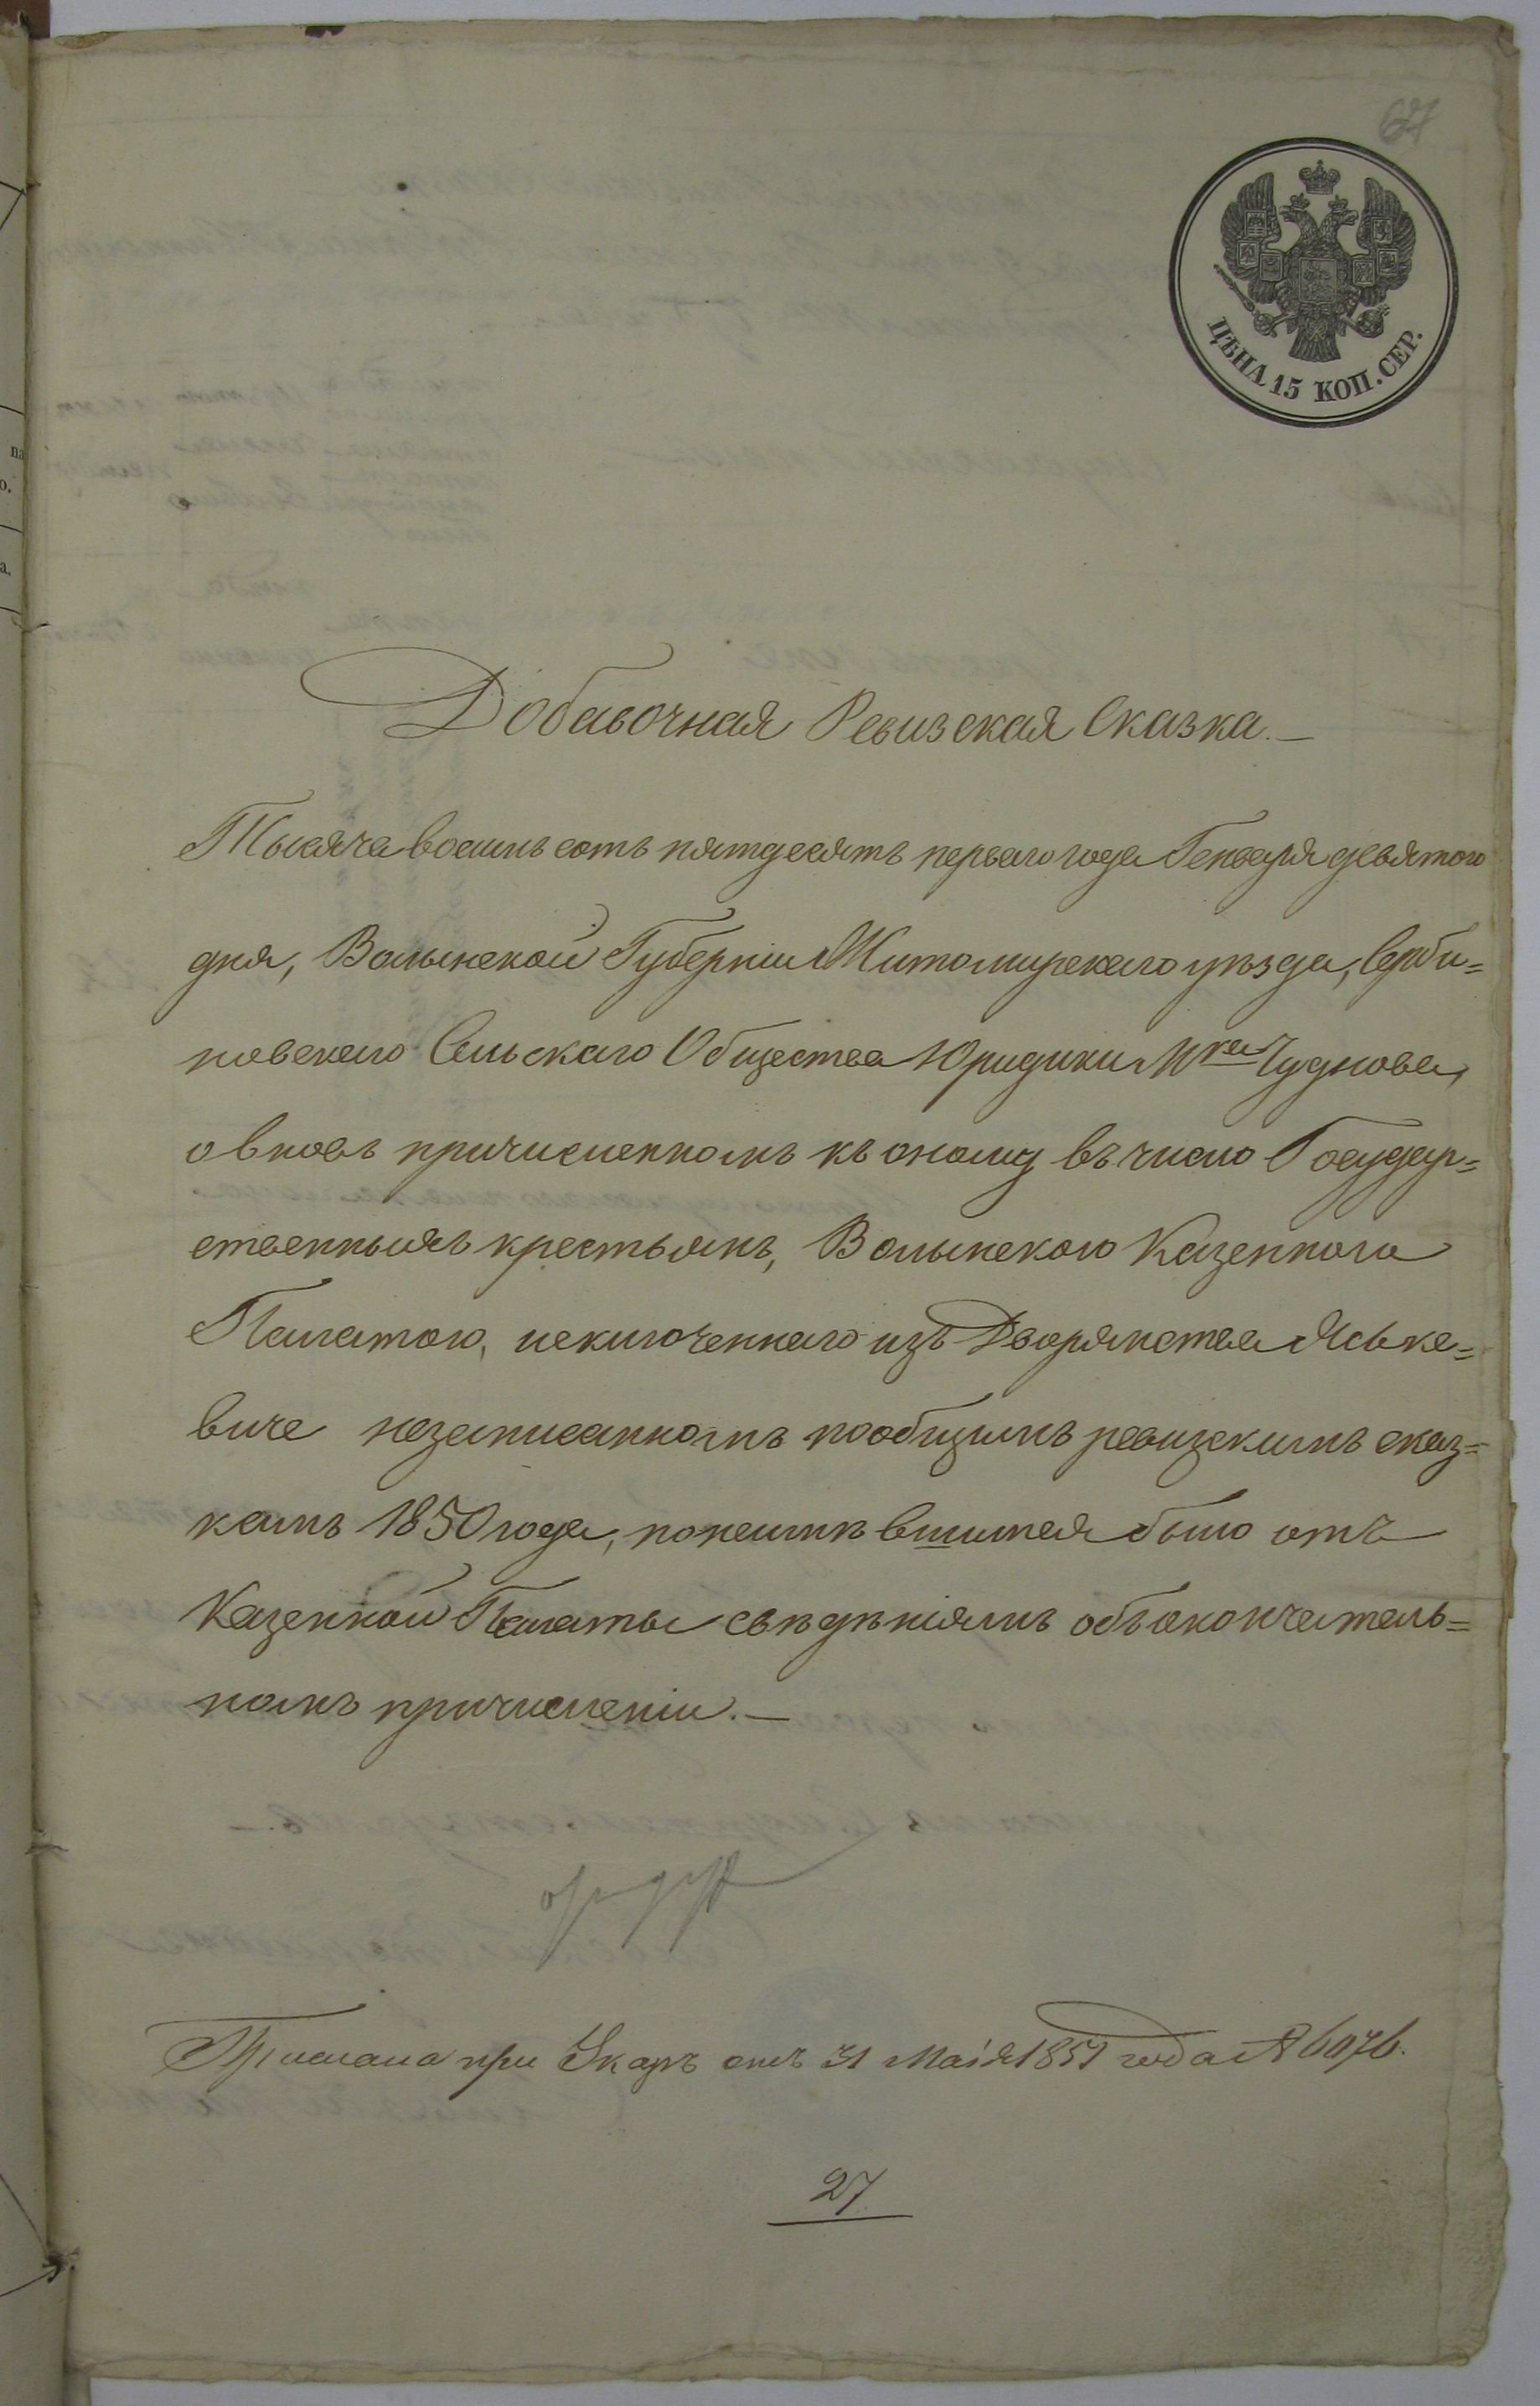 67
ЦѢНА 15 КОП. СЕР.
Добавочная Ревизская Сказка.—
Тысяча восемь сотъ пятдесятъ перваго года Генваря девятого
дня, Волынской Губерніи Житомирскаго уѣзда, Серби=
новскаго Сельскаго Общества Юридики Мка Чуднова,
о вновь причисленномъ къ оному въ число Государ=
ственныхъ крестьянъ, Волынскою Казенною
Палатою, исключеннаго изъ Дворянства Яське=
виче незаписанномъ пообщимъ ревизскимъ сказ=
камъ 1850 года, понеимѣвшимся было отъ
Казенной Палаты свѣдѣніямъ объокончатель=
номъ причисленіи.—
Прислана при Указѣ отъ 31 Маія 1851 года № 6076.
27